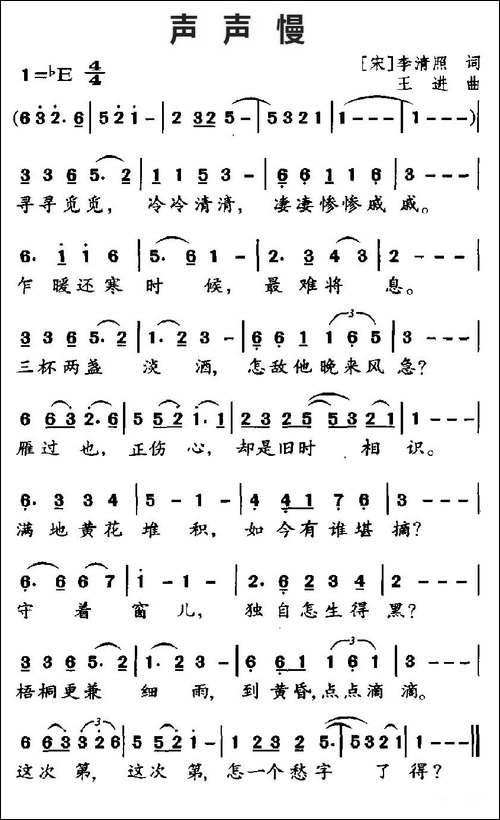 声声慢
1=♭E 4/4
[宋]李清照 词
王进 曲
(6 3 2. 6 | 5 2 1 - | 2 3 2 5 - | 5 3 2 1 | 1 - - - | 1 - - - )
3 3 6 5. 2 | 1 1 5 3 - | 6 6 1 1 6 | 3 - - - |
寻寻觅觅，冷冷清清，凄凄惨惨戚戚。
6. 1 1 6 | 5. 6 1 - | 2. 3 4 3 | 2 - - - |
乍暖还寒时候，最难将息。
3 3 6 5. 2 | 1. 2 3 - | 6 6 1 1 6 5 | 3 - - - |
三杯两盏淡酒，怎敌他晚来风急？
6 6 3 2. 6 | 5 5 2 1. 1 | 2 3 2 5 5 3 2 1 | 1 - - - |
雁过也，正伤心，却是旧时相识。
6. 3 3 4 | 5 - 1 - | 4 4 1 7 6 | 3 - - - |
满地黄花堆积，如今有谁堪摘？
6. 6 6 7 | 1 - 1 - | 2. 6 2 3 4 | 2 - - - |
守着窗儿，独自怎生得黑？
3 3 6 5. 2 | 1. 2 3 - | 6 6 1 1 6 1 | 3 - - - |
梧桐更兼细雨，到黄昏，点点滴滴。
6 6 3 3 2 6 | 5 5 2 1 - | 1 2 3 2 5. | 5 3 2 1 | 1 - - - ‖
这次第，这次第，怎一个愁字了得？